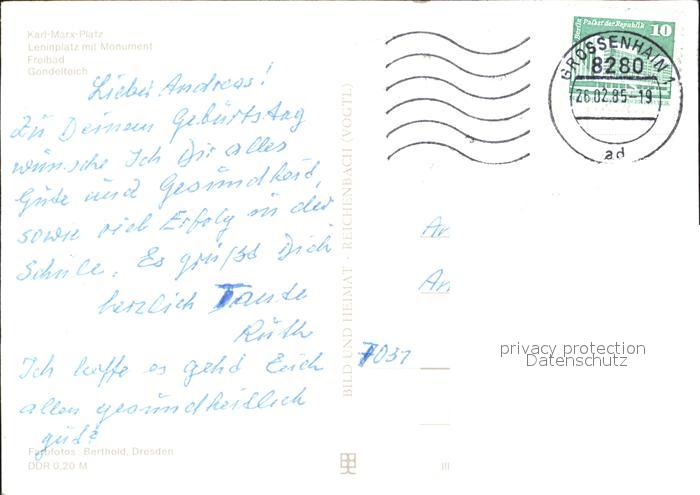 Karl-Marx-Platz
Leninplatz mit Monument
Freibad
Gondelteich
Lieber Andreas!
Zu Deinem Geburtstag
wünsche Ich Dir alles
Gute und Gesundheit,
sowie viel Erfolg in der
Schule. Es grüßt Dich
herzlich Tante
Ruth
Ich hoffe es gehd Euch
allen gesundheitlich
gut?
Farbfotos: Berthold, Dresden
DDR 0,20 M
BILD UND HEIMAT · REICHENBACH (VOGTL)
Berlin Palast der Republik
10
GROSSENHAIN 1
8280
26.02.85-19
ad
An
An
7031
privacy protection
Datenschutz
III